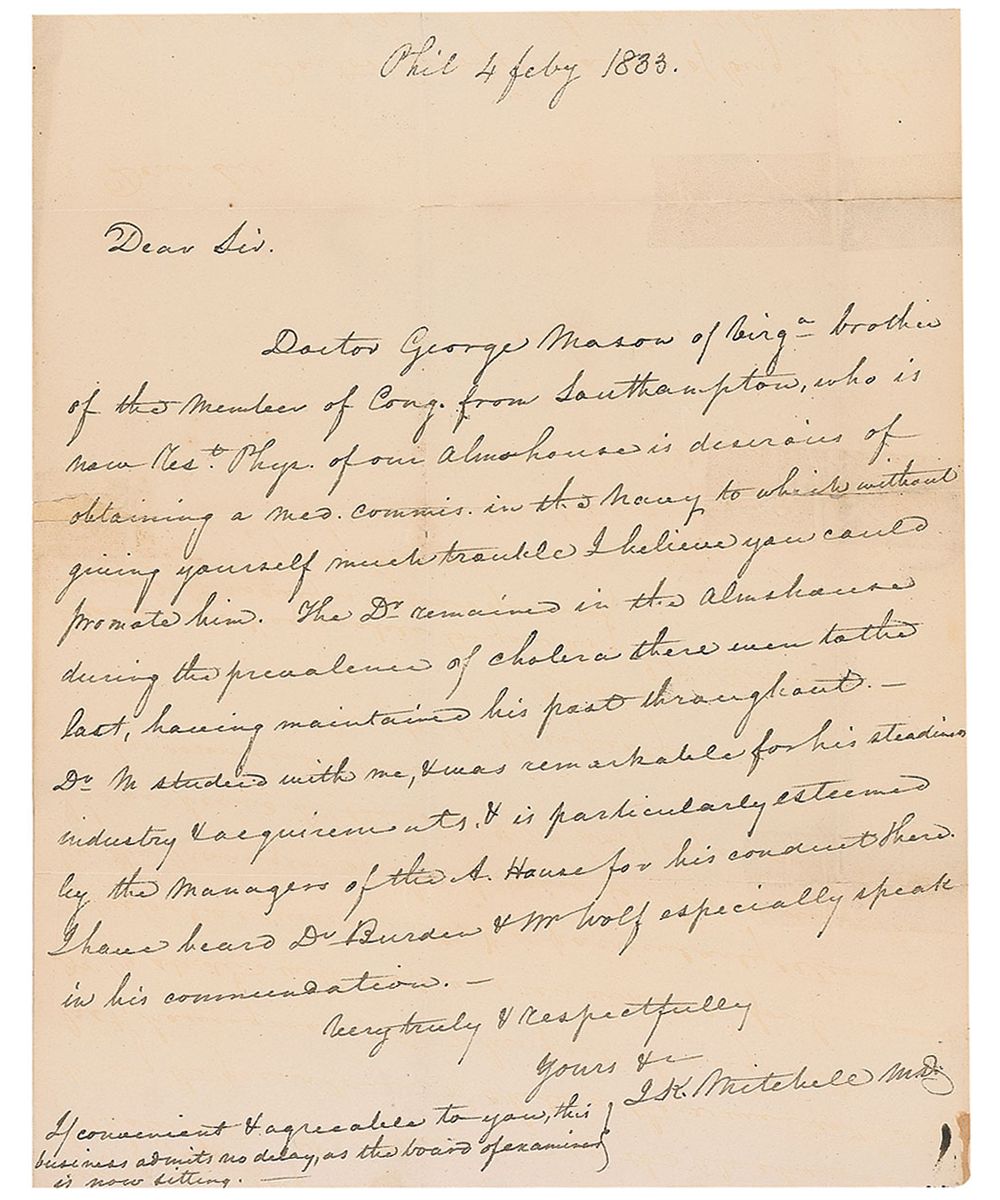 Phil 4 feby 1833.
Dear Sir.
Doctor George Mason of Virgᵃ brother
of the Member of Cong. from Southampton, who is
now Resᵗ. Phys. of our Almshouse is desirous of
obtaining a med. commis. in the Navy to which without
giving yourself much trouble I believe you could
promote him. The Dʳ remained in the Almshouse
during the prevalence of cholera there even to the
last, having maintained his post throughout. —
Dʳ M studied with me, & was remarkable for his steadiness
industry & acquirements. & is particularly esteemed
by the Managers of the A. House for his conduct there.
I have heard Dʳ Burden & Mʳ Wolf especially speak
in his commendation. —
Very truly & respectfully
Yours &c
J. K. Mitchell MD.
If convenient & agreeable to you, this
business admits no delay, as the board of examiners
is now sitting. —